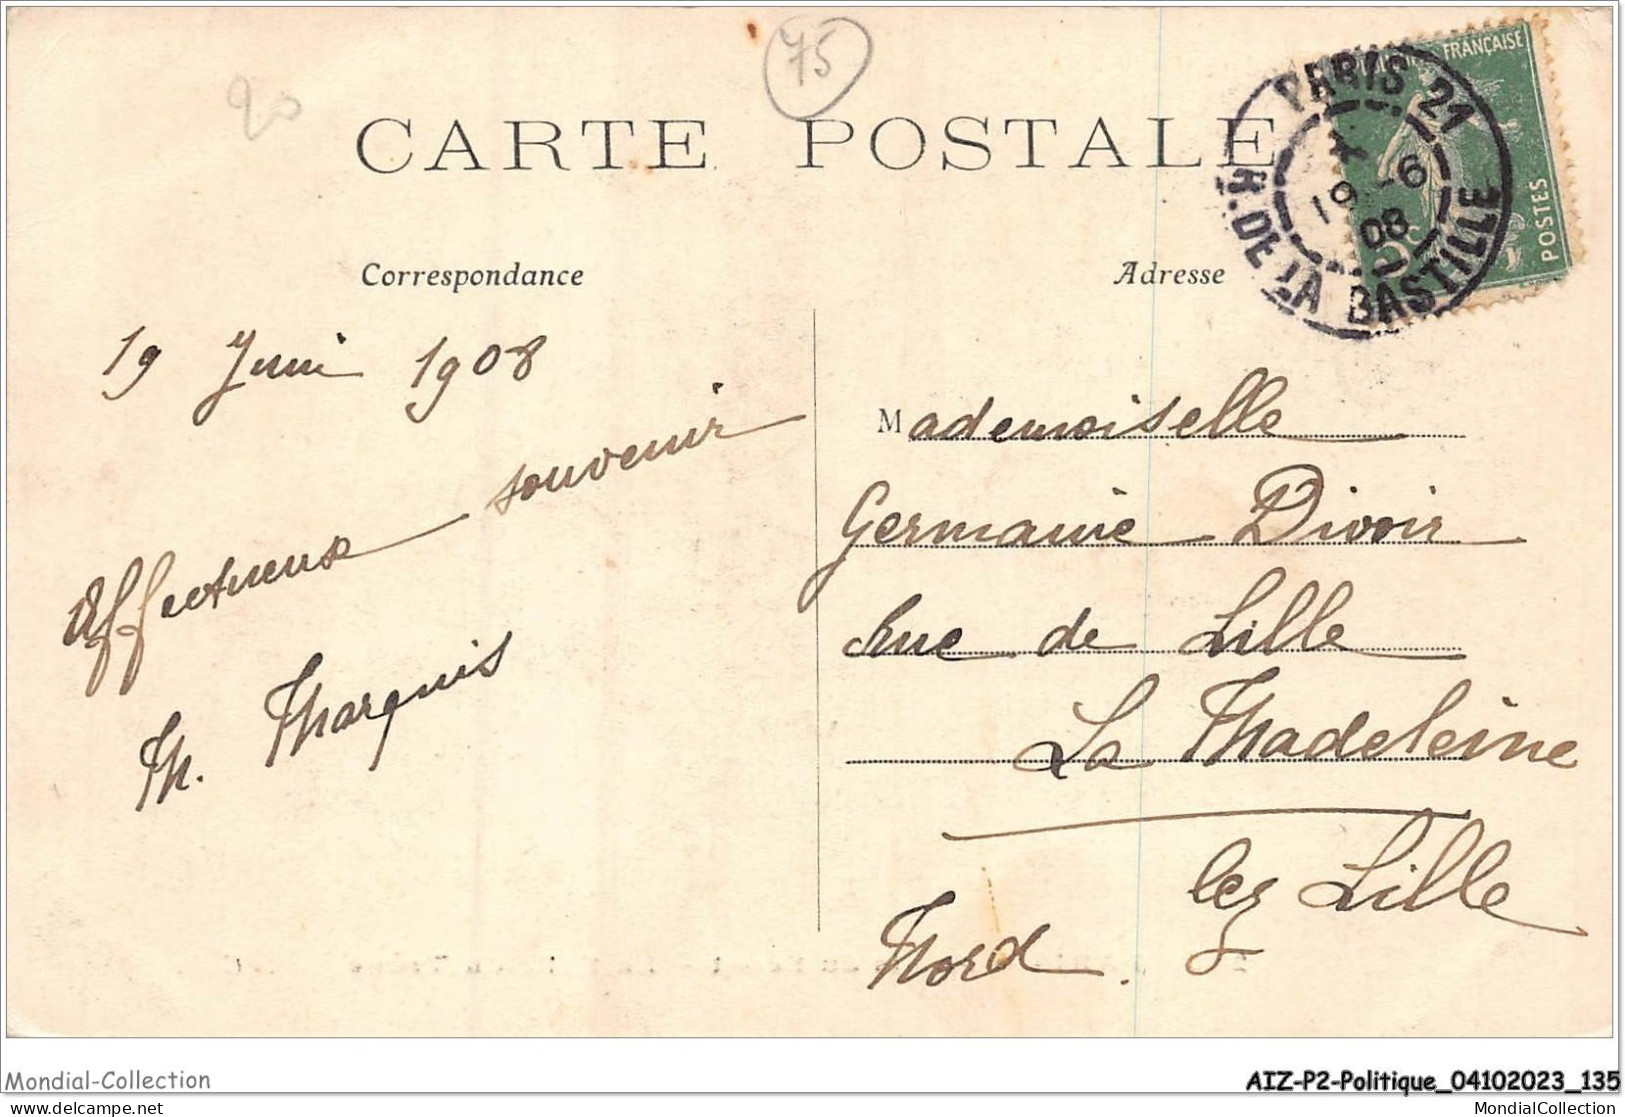 20
75
CARTE POSTALE
FRANÇAISE
POSTES
5c
PARIS 21
19 -6
08
R. DE LA BASTILLE
Correspondance
Adresse
19 Juin 1908
Affectueux souvenir
M. Marquis
Mademoiselle
Germaine Divoir
Rue de Lille
La Madeleine
lez Lille
Nord.
Mondial-Collection
AIZ-P2-Politique_04102023_135
www.delcampe.net
MondialCollection